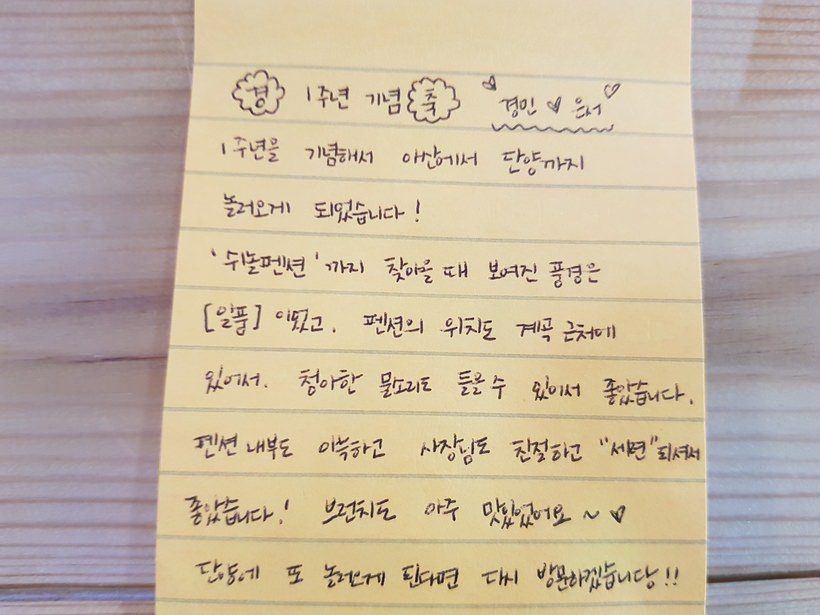 경 1주년 기념 축 경민 ♥ 은서
1주년을 기념해서 아산에서 단양까지
놀러오게 되었습니다!
'쉬놀펜션'까지 찾아올 때 보여진 풍경은
[일품] 이였고. 펜션의 위치도 계곡 근처에
있어서. 청아한 물소리도 들을 수 있어서 좋았습니다.
펜션 내부도 아늑하고 사장님도 친절하고 "세면"되셔서
좋았습니다! 브런치도 아주 맛있었어요 ~ ♥
단양에 또 놀러오게 된다면 다시 방문하겠습니당!!